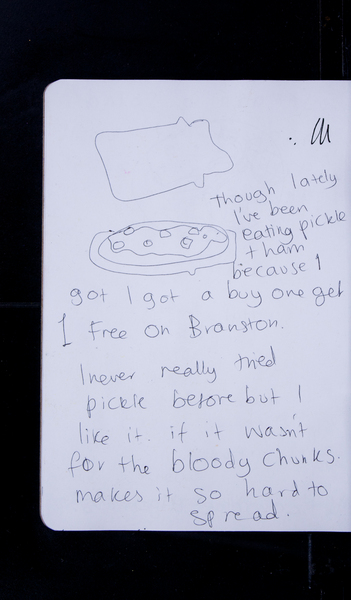 though lately
I've been
eating pickle
+ ham
because I
got I got a buy one get
1 Free on Branston.
I never really tried
pickle before but I
like it. if it wasn't
for the bloody chunks.
makes it so hard to
spread.